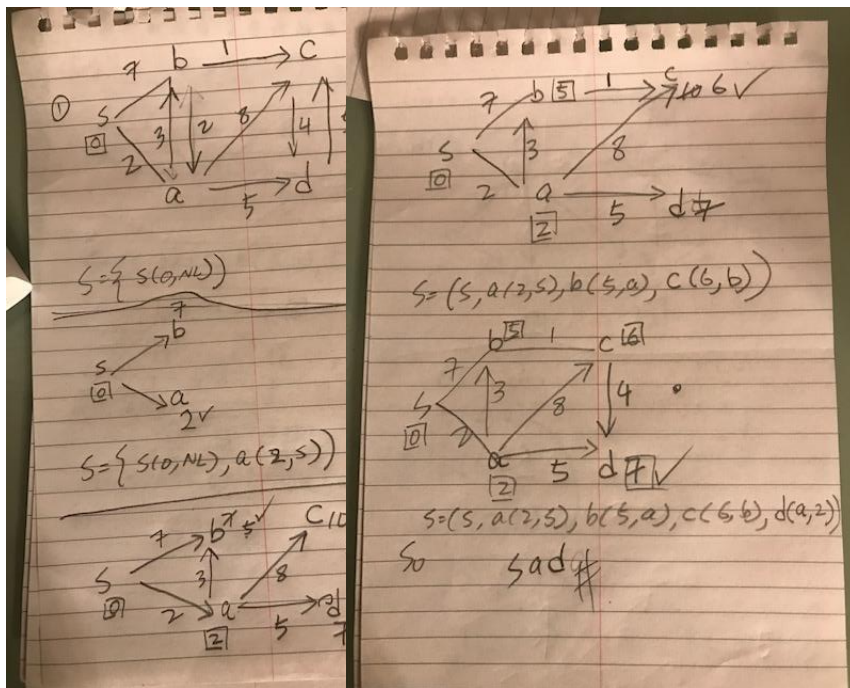 ①
7 b 1 c
s
0
3 2 8 4
2
a 5 d
S={ s(0,NL))
7
b
s
0
a
2✓
S={ s(0,NL), a(2,s))
7 b 7 5✓ C 10
s 3 8
0 2 a 5 d
2 7
7 b 5 1 c
7 10 6 ✓
s 3 8
0 2 a 5 d 7
2
S=(s, a(2,s), b(5,a), c(6,b))
b 5 1 c 6
7 3 8 4
s
0 2
a 5 d 7 ✓
2
S=(s, a(2,s), b(5,a), c(6,b), d(a,2))
So sad #